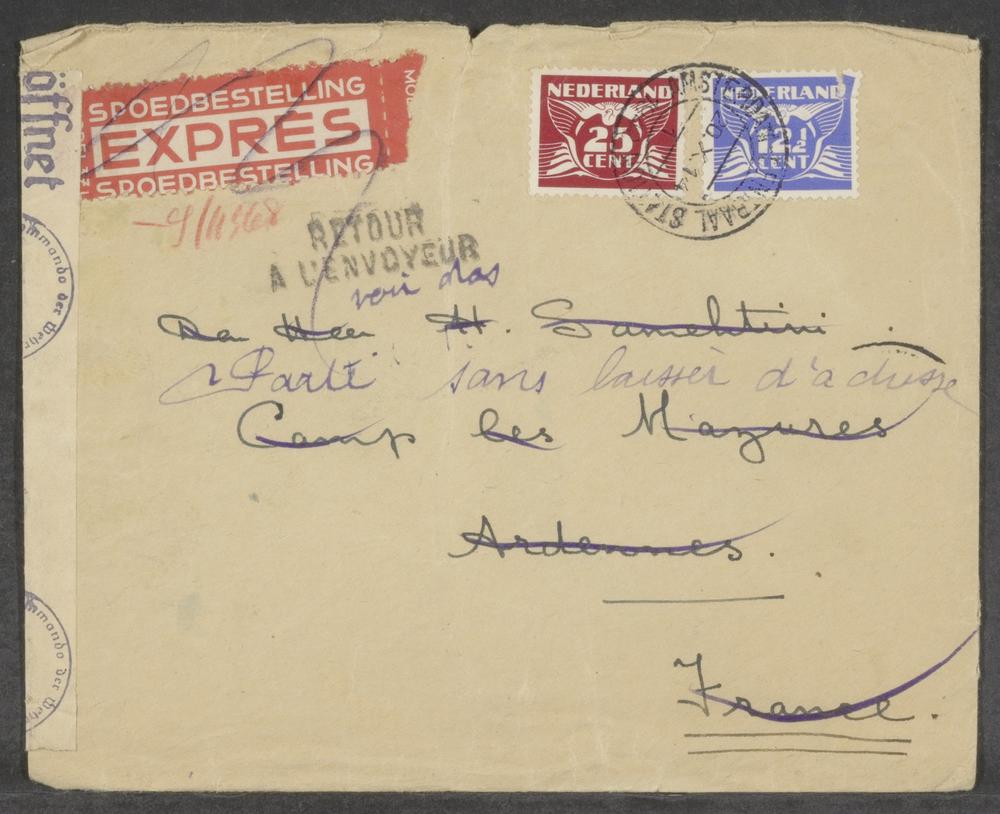 öffnet
SPOEDBESTELLING
EXPRES
SPOEDBESTELLING
NEDERLAND
25
CENT
NEDERLAND
12½
CENT
AMSTERDAM CENTRAAL STATION
RETOUR
A L'ENVOYEUR
voir dos
Den Heer H. Samehtini.
Parti sans laisser d'adresse
Camp les Mazures
Ardennes.
France.
mmando der Wehr
mmando der Wehr